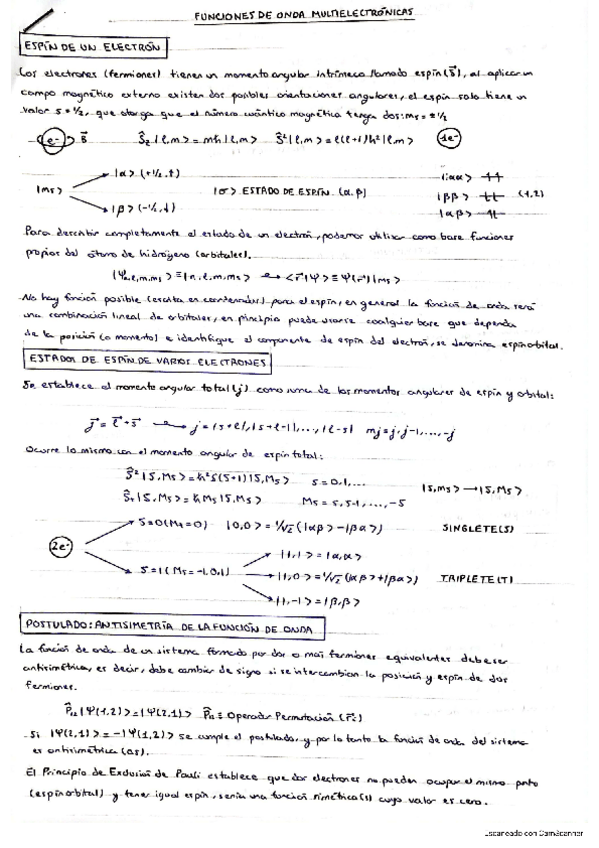 FUNCIONES DE ONDA MULTIELECTRÓNICAS
ESPÍN DE UN ELECTRÓN
Los electrones (fermiones) tienen un momento angular intrínseco llamado espín (S⃗), al aplicar un
campo magnético externo existen dos posibles orientaciones angulares, el espín solo tiene un
valor s=1/2, que otorga que el número cuántico magnético tenga dos: ms = ±1/2
e⁻ S⃗ Ŝz|l,m> = mħ|l,m> Ŝ²|l,m> = l(l+1)ħ²|l,m> 1e⁻
|α> (+1/2,↑) |αα>
|ms> |σ> ESTADO DE ESPÍN (α,β) |ββ> (1,2)
|β> (-1/2,↓) |αβ>
Para describir completamente el estado de un electrón, podemos utilizar como base funciones
propias del átomo de hidrógeno (orbitales).
|Ψn,l,m,ms> ≡ |n,l,m,ms> <r⃗|Ψ> ≡ Ψ(r⃗)|ms>
No hay función posible (escrita en coordenadas) para el espín, en general la función de onda será
una combinación lineal de orbitales, en principio puede usarse cualquier base que dependa
de la posición (o momento) e identifique el componente de espín del electrón, se denomina espinorbital.
ESTADOS DE ESPÍN DE VARIOS ELECTRONES
Se establece el momento angular total (j) como suma de los momentos angulares de espín y orbital:
j⃗ = l⃗ + s⃗ j = |s+l|, |s+l-1|, ..., |l-s| mj = j, j-1, ..., -j
Ocurre lo mismo con el momento angular de espín total:
Ŝ²|S,Ms> = ħ²S(S+1)|S,Ms> S = 0,1,...
|s,ms> → |S,Ms>
Ŝz|S,Ms> = ħMs|S,Ms> Ms = S,S-1,...,-S
S=0 (Ms=0) |0,0> = 1/√2 (|αβ> - |βα>) SINGLETE (S)
2e⁻
|1,1> = |α,α>
S=1 (Ms=-1,0,1) |1,0> = 1/√2 (|αβ> + |βα>) TRIPLETE (T)
|1,-1> = |β,β>
POSTULADO: ANTISIMETRÍA DE LA FUNCIÓN DE ONDA
La función de onda de un sistema formado por dos o más fermiones equivalentes debe ser
antisimétrica, es decir, debe cambiar de signo si se intercambian la posición y espín de dos
fermiones.
P̂12|Ψ(1,2)> = |Ψ(2,1)> P̂12 ≡ Operador Permutación
Si |Ψ(2,1)> = -|Ψ(1,2)> se cumple el postulado, y por lo tanto la función de onda del sistema
es antisimétrica (as).
El Principio de Exclusión de Pauli establece que dos electrones no pueden ocupar el mismo punto
(espinorbital) y tener igual espín, sería una función simétrica (s) cuyo valor es cero.
Escaneado con CamScanner